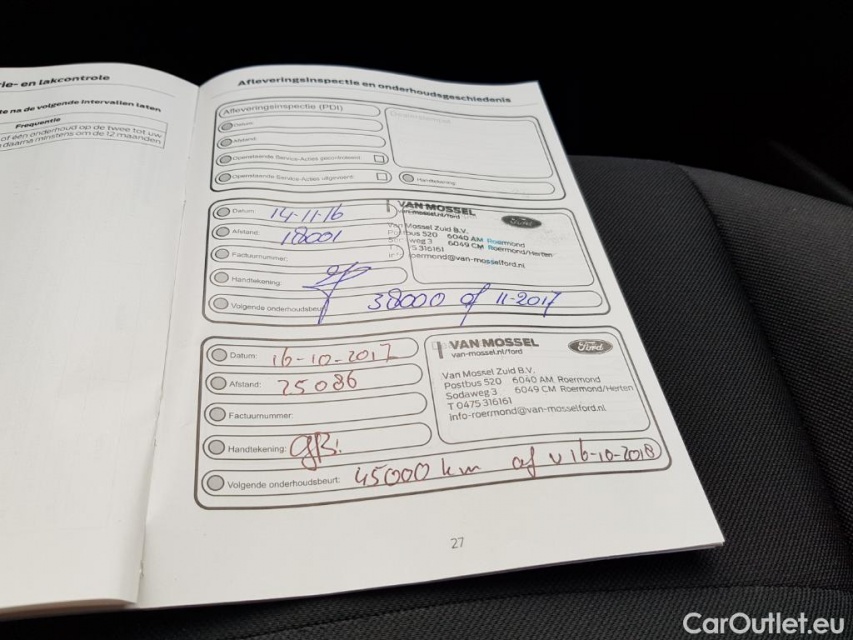 ie- en lakcontrole
te na de volgende intervallen laten
Frequentie
of één onderhoud op de twee tot uw
daarna minstens om de 12 maanden
Afleveringsinspectie en onderhoudsgeschiedenis
Afleveringsinspectie (PDI)
Datum:
Afstand:
Openstaande Service-Acties gecontroleerd
Openstaande Service-Acties uitgevoerd
Handtekening:
Datum: 14-11-16
Afstand: 18001
Factuurnummer:
Handtekening:
Volgende onderhoudsbeurt: 38000 of 11-2017
VAN MOSSEL
van-mossel.nl/ford
Ford
Van Mossel Zuid B.V.
Postbus 520 6040 AM Roermond
weg 3 6049 CM Roermond/Herten
75 316161
roermond@van-mosselford.nl
Datum: 16-10-2017
Afstand: 25086
Factuurnummer:
Handtekening:
Volgende onderhoudsbeurt: 45000 km of v 16-10-2018
VAN MOSSEL
van-mossel.nl/ford
Ford
Van Mossel Zuid B.V.
Postbus 520 6040 AM Roermond
Sodaweg 3 6049 CM Roermond/Herten
T 0475 316161
info-roermond@van-mosselford.nl
27
CarOutlet.eu